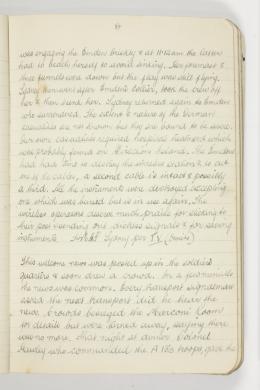 was engaging the Emden briskly & at 11.20am the latter
had to beach herself to avoid sinking. Her foremast &
three funnels were down but the flag was still flying.
Sydney then went after Emden's Collier, took the crew off
her & then sunk her. Sydney returned again to Emden
who surrendered. The extent & nature of the German
casualties are not known but they are bound to be severe.
but were casualties required hospital treatment which
was probably found on
had had time to destroy the wireless station & to cut
one of the cables, a second cable is intact & possibly
a third. All the instruments were destroyed excepting
one which was buried but is in use again. The
wireless operators deserve much praise for sticking to
their post sending out distress signals & for saving
instruments. Sydney per
This welcome news was posted up in the soldiers
quarters & soon drew a crowd. In a few minutes
the news was common. Every transport signalman
asked the next transport did he hear the
news. Crowds besieged the Marconi Room
for details but were turned away, saying there
was no more. That night at dinner Colonel
who commanded the troops, gave the